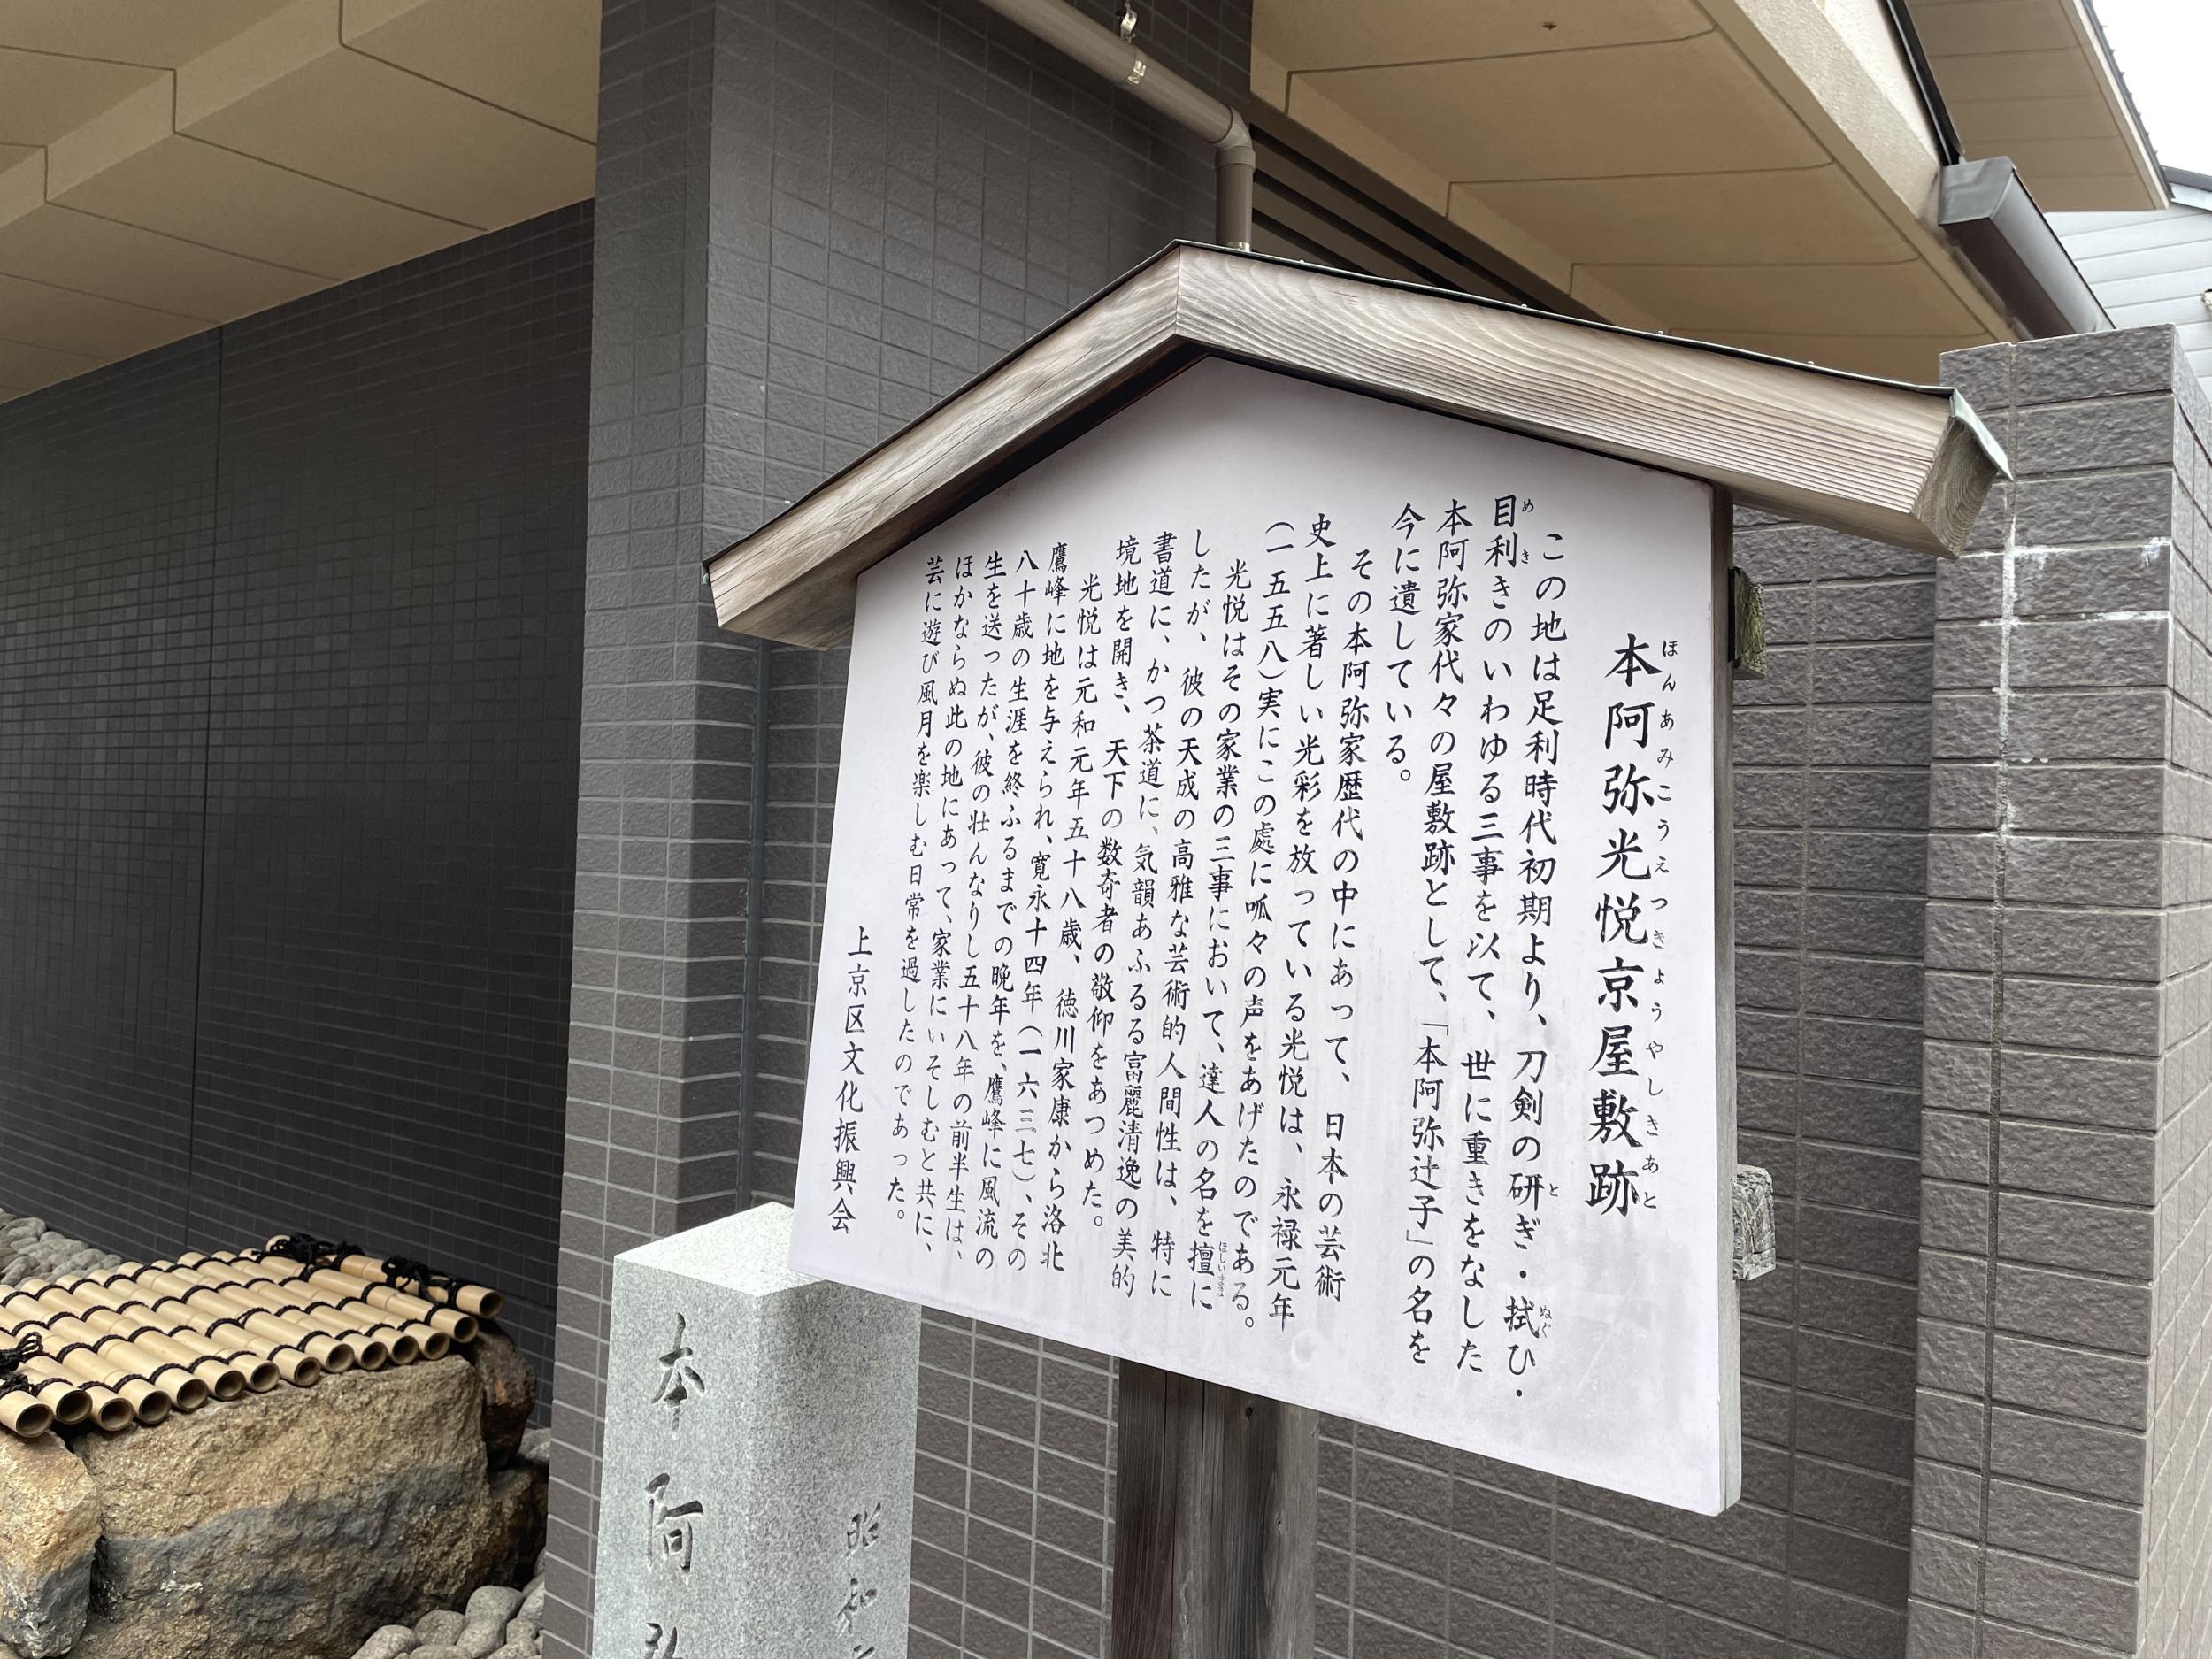 本阿弥光悦京屋敷跡
ほんあみこうえつきょうやしきあと
この地は足利時代初期より、刀剣の研ぎ・拭ひ・
と
ぬぐ
目利きのいわゆる三事を以て、世に重きをなした
めき
本阿弥家代々の屋敷跡として、「本阿弥辻子」の名を
今に遺している。
その本阿弥家歴代の中にあって、日本の芸術
史上に著しい光彩を放っている光悦は、永禄元年
(一五五八)実にこの處に呱々の声をあげたのである。
光悦はその家業の三事において、達人の名を擅に
ほしいまま
したが、彼の天成の高雅な芸術的人間性は、特に
書道に、かつ茶道に、気韻あふるる富麗清逸の美的
境地を開き、天下の数奇者の敬仰をあつめた。
光悦は元和元年五十八歳、徳川家康から洛北
鷹峰に地を与えられ、寛永十四年(一六三七)、その
八十歳の生涯を終ふるまでの晩年を、鷹峰に風流の
生を送ったが、彼の壮んなりし五十八年の前半生は、
ほかならぬ此の地にあって、家業にいそしむと共に、
芸に遊び風月を楽しむ日常を過したのであった。
上京区文化振興会
本阿
昭和